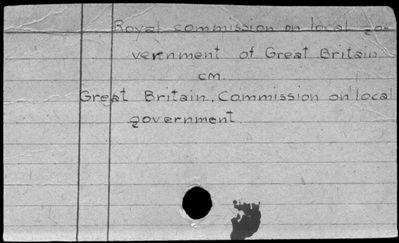 Royal commission on local go-
vernment of Great Britain
cm.
Great Britain. Commission on local
government.